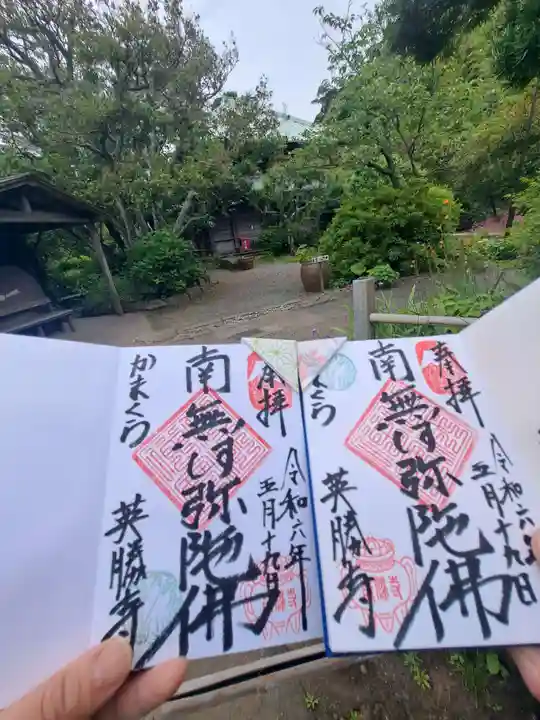 奉拝
令和六年
五月十九日
南無阿弥陀佛
かまくら
英勝寺
奉拝
令和六年
五月十九日
南無阿弥陀佛
くら
英勝寺